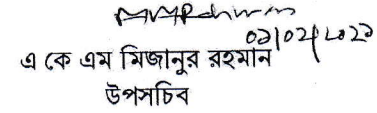 ০১/০২/২০২০
এ কে এম মিজানুর রহমান
উপসচিব